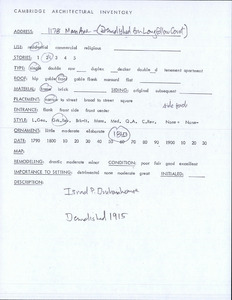 CAMBRIDGE ARCHITECTURAL INVENTORY
ADDRESS: 1178 Mass Ave - (Demolished for Longfellow Court)
USE: residential commercial religious
STORIES: 1 2 3 4 5
TYPE: single double duplex decker double d tenement apartment
ROOF: hip gable front gable flank mansard flat
MATERIAL: frame brick SIDING: original subsequent
PLACEMENT: narrow to street broad to street square
ENTRANCE: flank front side front center side porch
ORNAMENT: little moderate elaborate 1840
DATE: 1790 1800 10 20 30 40 50 60 70 80 90 1900 10 20 30
MAP:
REMODELING: drastic moderate minor CONDITION: poor fair good excellent
IMPORTANCE TO SETTING: detrimental none moderate great INITIALED:
DESCRIPTION:
Israel P.
Demolished 1915